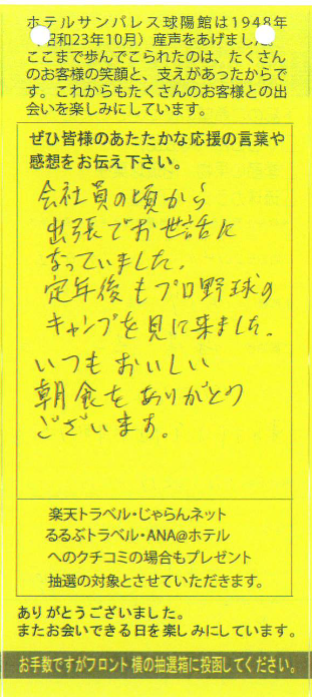 ホテルサンパレス球陽館は1948年
(昭和23年10月)産声をあげました。
ここまで歩んでこられたのは、たくさん
のお客様の笑顔と、支えがあったからで
す。これからもたくさんのお客様との出
会いを楽しみにしています。
ぜひ皆様のあたたかな応援の言葉や
感想をお伝え下さい。
会社員の頃から
出張でお世話に
なっていました。
定年後もプロ野球の
キャンプを見に来ました。
いつもおいしい
朝食をありがとう
ございます。
楽天トラベル・じゃらんネット
るるぶトラベル・ANA@ホテル
へのクチコミの場合もプレゼント
抽選の対象とさせていただきます。
ありがとうございました。
またお会いできる日を楽しみにしています。
お手数ですがフロント横の抽選箱に投函してください。